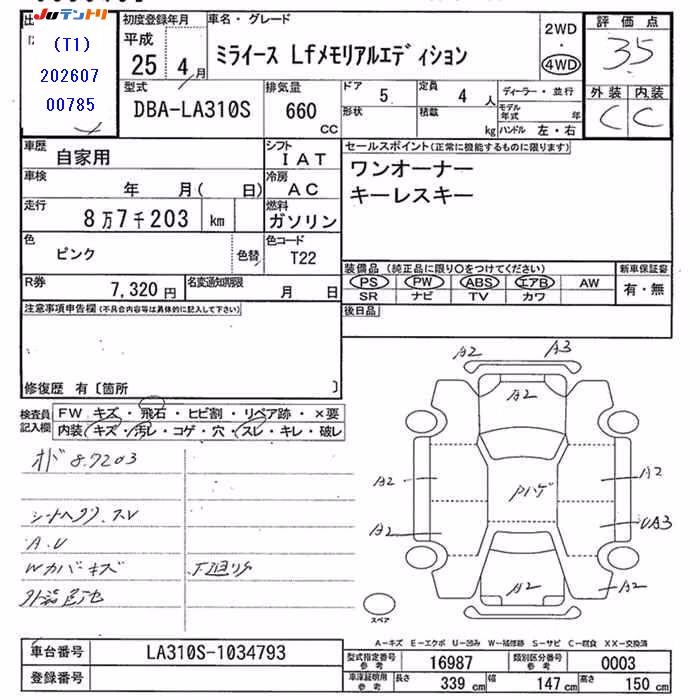 JUテントリ
(T1)
202607
00785
初度登録年月
平成
25 4月
車名・グレード
ミライース Lfメモリアルエディション
2WD
・
4WD
評価点
3.5
外装 内装
C C
型式
DBA-LA310S
排気量
660 cc
ドア 5
形状
定員 4 人
積載 kg
ディーラー・並行
モデル年式 年
ハンドル 左・右
車歴
自家用
シフト
IAT
車検
年 月( 日)
冷房
AC
走行
8万7千203 km
燃料
ガソリン
色
ピンク
色替
色コード
T22
R券
7,320円
名変通知期限
月 日
セールスポイント(正常に機能するものに限ります)
ワンオーナー
キーレスキー
装備品(純正品に限り○をつけてください)
PS PW ABS エアB AW
SR ナビ TV カワ
新車保証書
有・無
後日品
注意事項申告欄(不具合内容等は具体的に記入して下さい)
修復歴 有〔箇所 〕
検査員
記入欄
FW キズ・飛石・ヒビ割・リペア跡・×要
内装 キズ・汚レ・コゲ・穴・スレ・キレ・破レ
オド 8.7203
A.U
Wカバキズ
下廻りサ
外装色地
A2 A3
A2
A2 A2
Pハゲ
A2 UA3
A2 A2
スペア
A-キズ E-エクボ U-凹み W-補修跡 S-サビ C-腐食 XX-交換済
車台番号
LA310S-1034793
登録番号
型式指定番号
参考
16987
類別区分番号
参考
0003
車庫証明用
参考
長さ 339 cm
幅 147 cm
高さ 150 cm